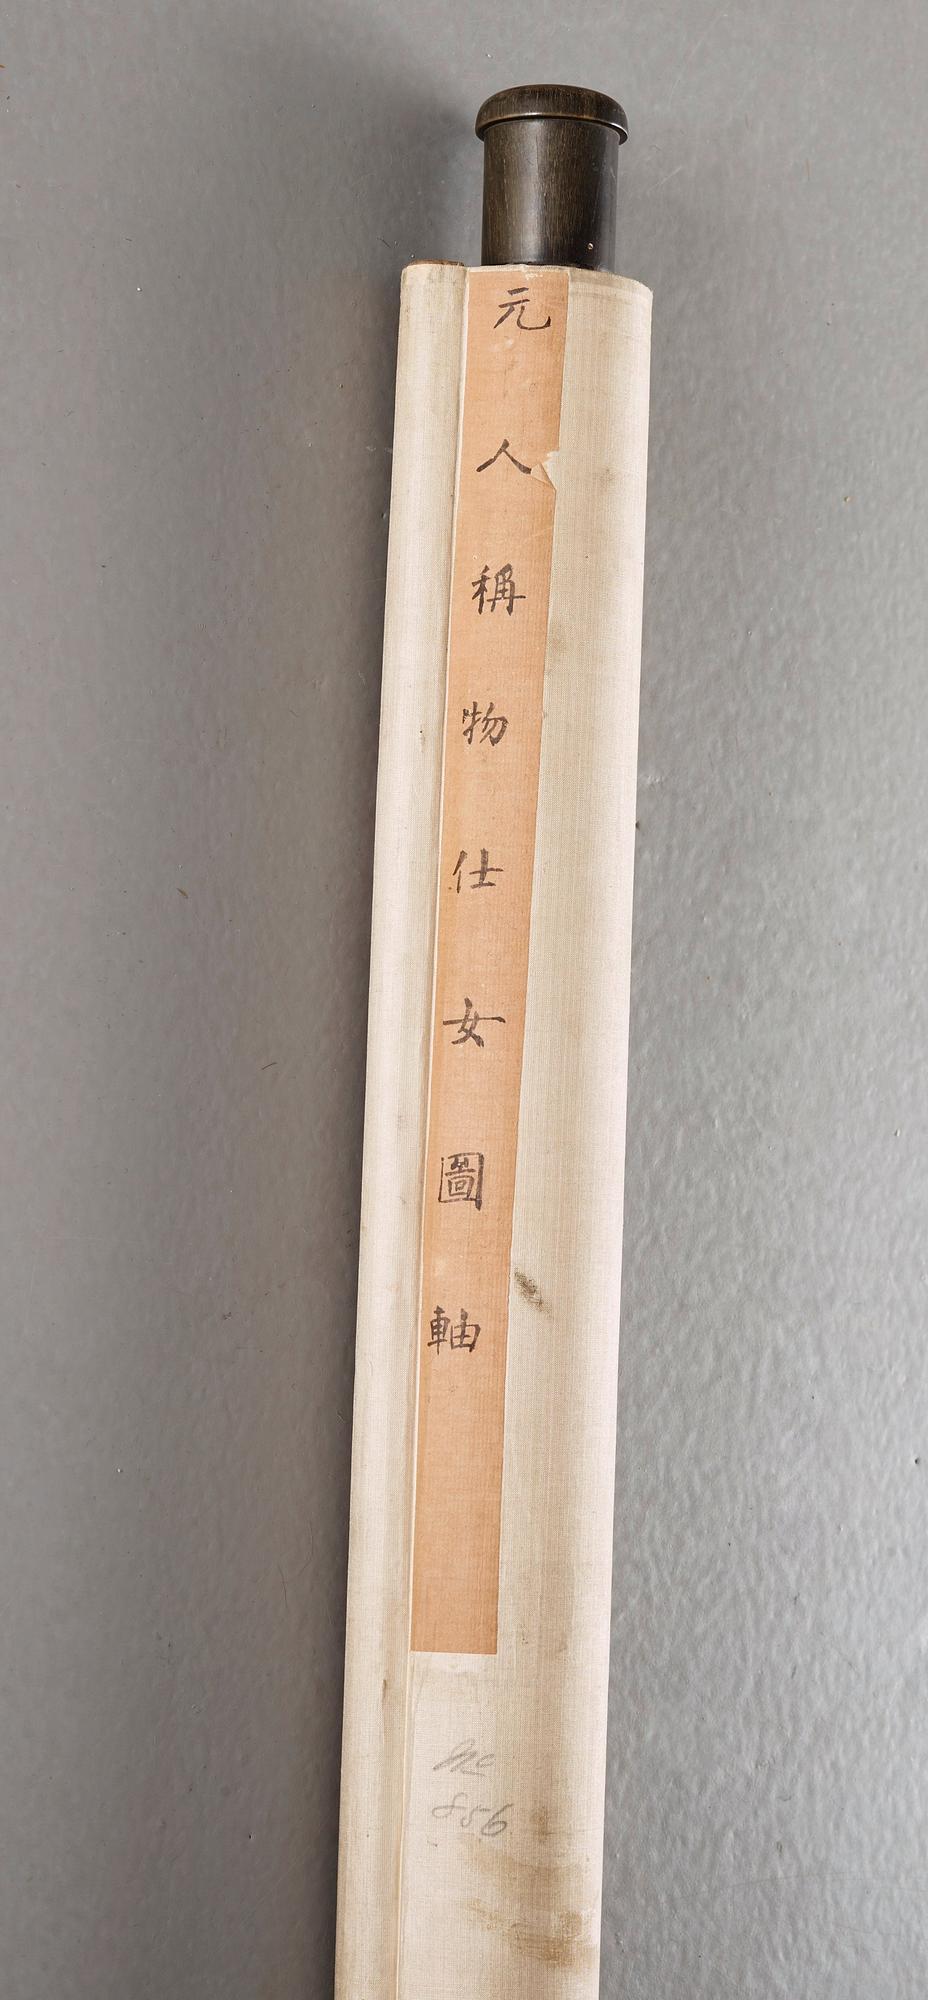 元人稱物仕女圖軸
856